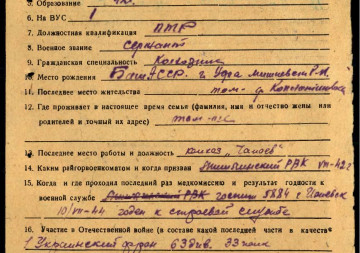 5. Образование 4кл.
6. На ВУС 1
7. Должностная квалификация ПТР
8. Военное звание Сержант
9. Гражданская специальность Колхозник
10. Место рождения БашАССР. г. Уфа Мишкинский Р-н
11. Последнее место жительства там- д. Константиновка
12. Где проживает в настоящее время семья (фамилия, имя и отчество жены или
родителей и точный их адрес) там-же
13. Последнее место работы и должность колхоз "Чапаев"
14. Каким райгорвоенкоматом и когда призван Мишкинский РВК VII-42 г
15. Когда и где проходил последний раз медкомиссию и результат годности к
военной службе госпит 5884 г.
10/VII-44 годен к строевой службе
16. Участие в Отечественной войне (в составе какой последней части в качестве
1 Украинский фрон 63 див. 33 полк